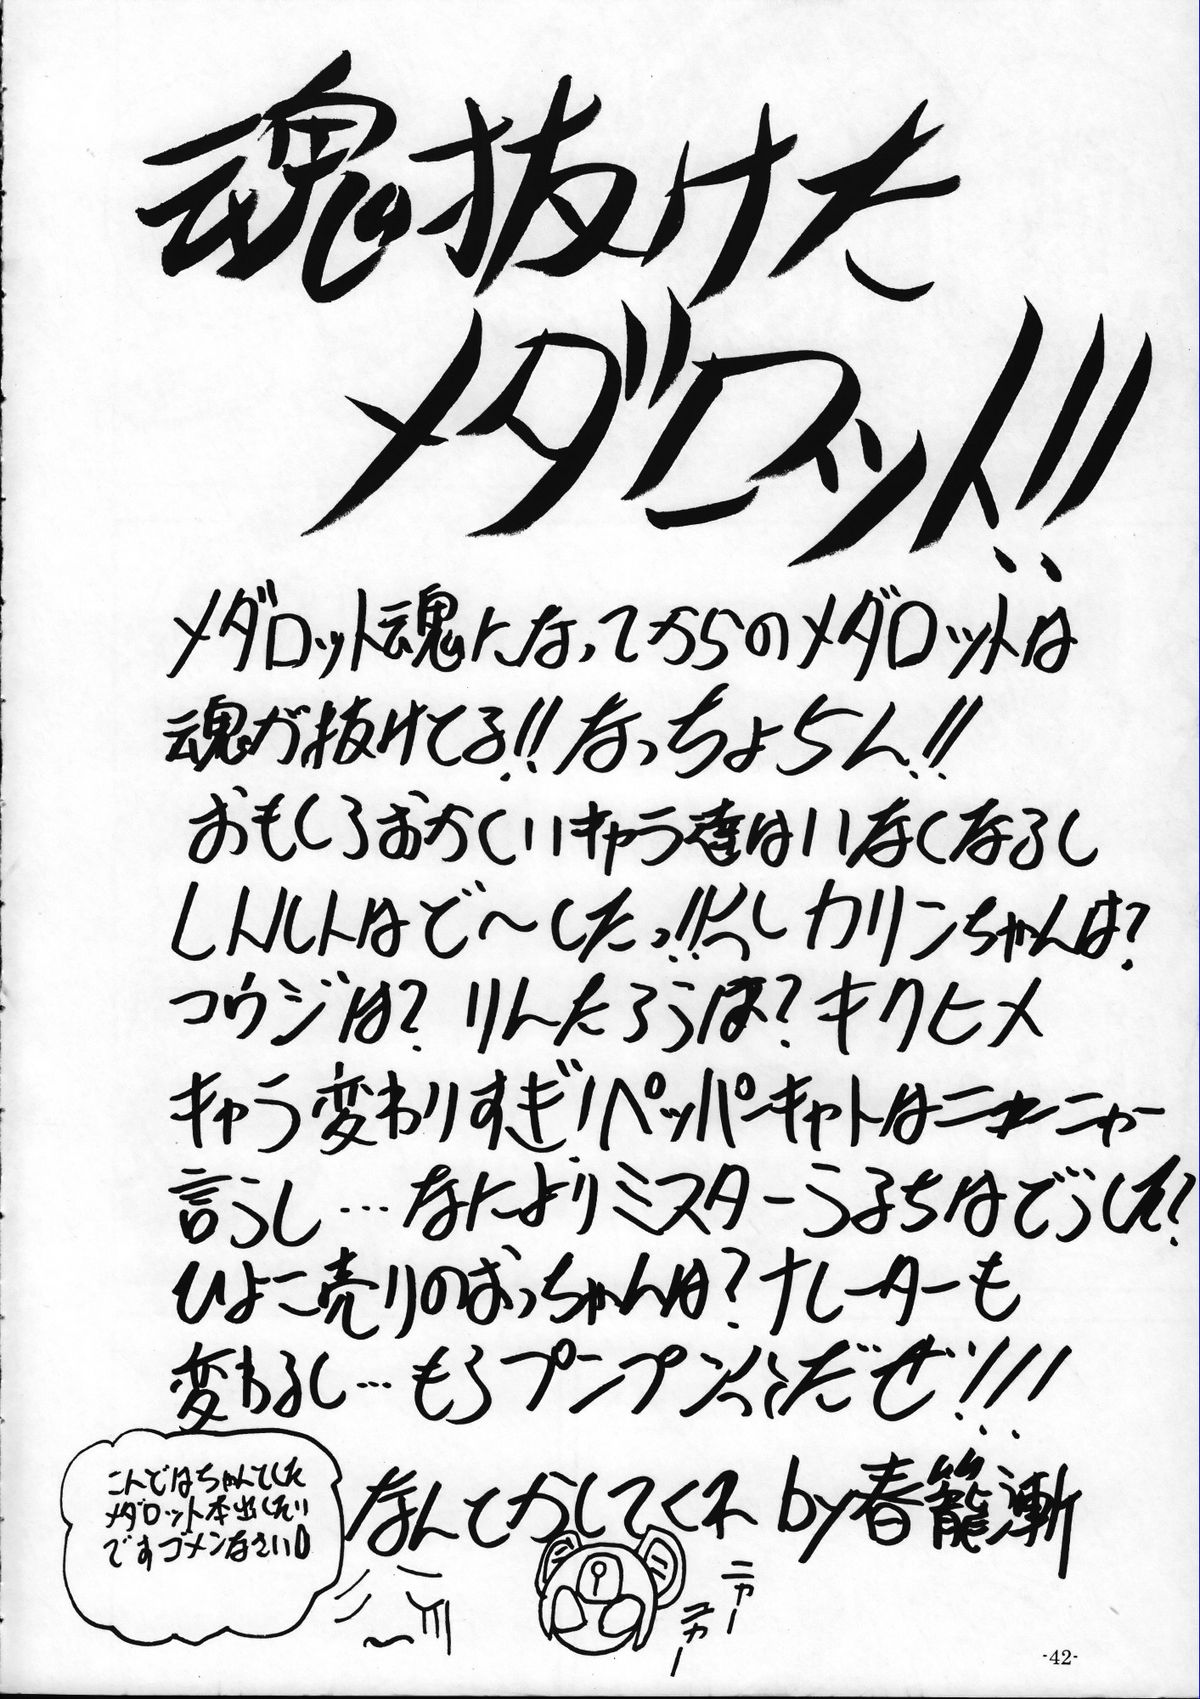 魂抜けた
メダロット!!
メダロット魂になってからのメダロットは
魂が抜けてる!!なっちょらん!!
おもしろおかしいキャラ達はいなくなるし
レトルトはど〜したっ!!
カリンちゃんは?
コウジは?りんたろうは?キクヒメ
キャラ変わりすぎ!ペッパーキャットはニャーニャー
言うし…なによりミスターうるちはどうした?
ひよこ売りのおっちゃんは?ナレーターも
変わるし…もうプンプンだぜ!!!
なんとかしてくれ by春籠漸
こんどはちゃんとした
メダロット本出したい
ですゴメンなさい
ニャー
ニャー
-42-